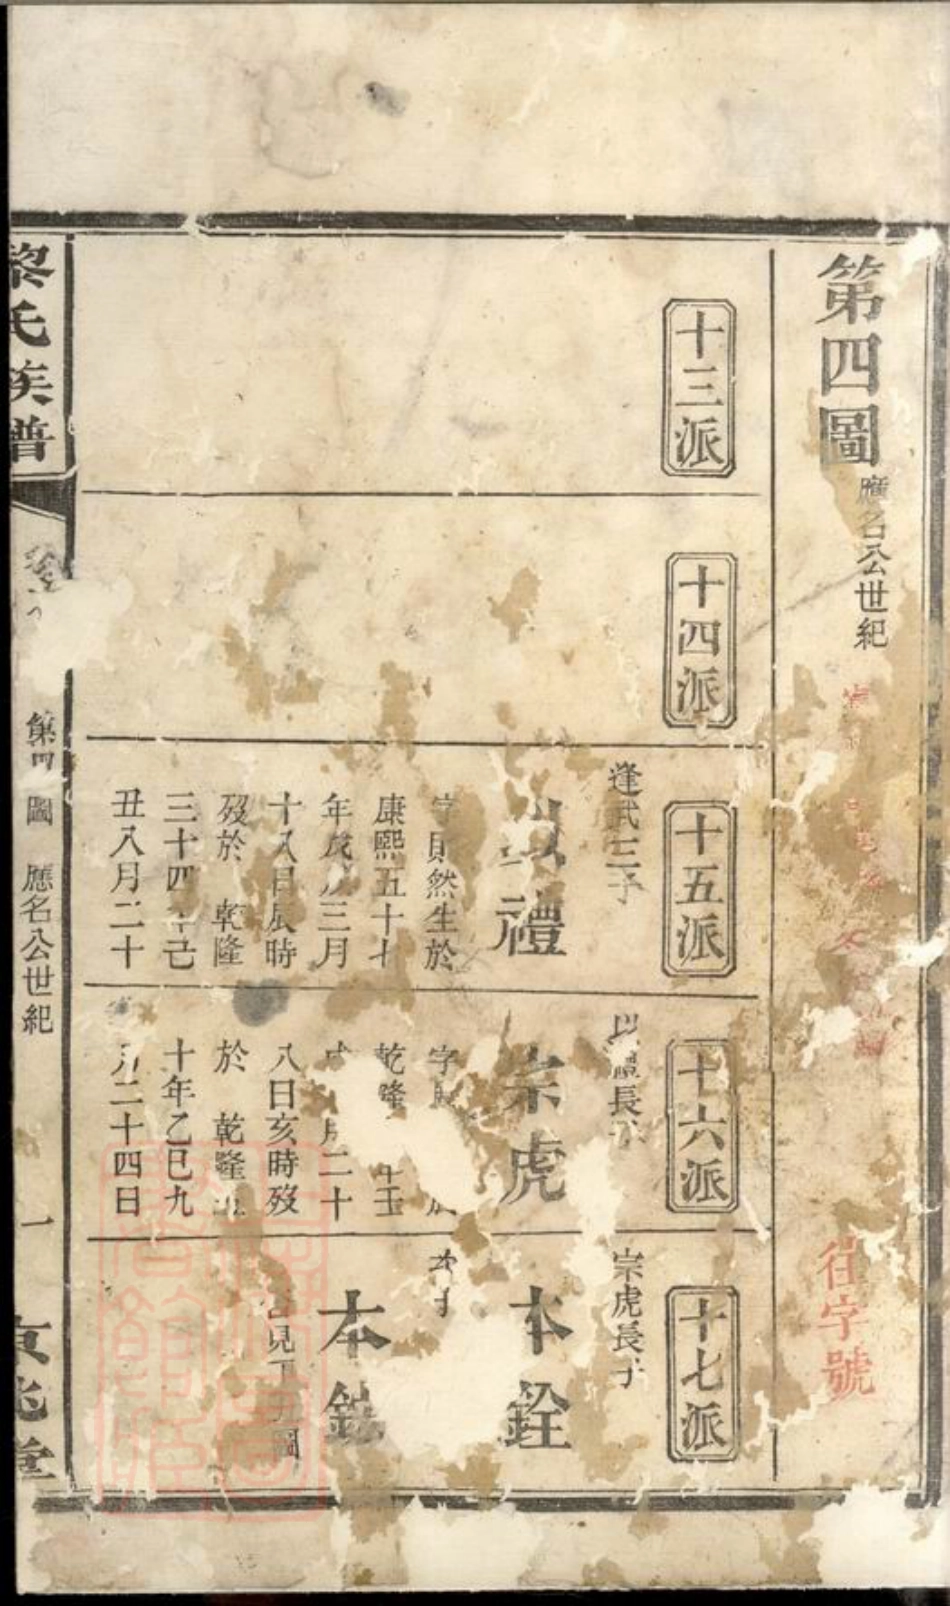 第四圖
應名公世紀
往字號
十三派
十四派
十五派
逢武三子
禮
字則然生於
康熙五十七
年戊 三月
十八日辰時
歿於 乾隆
三十四年己
丑八月二十
十六派
以禮長子
宗虎
字
乾隆 十五
月二十
八日亥時歿
於 乾隆五
十年乙巳九
月二十四日
十七派
宗虎長子
本銓
本
見下 圖
黎氏族譜
第四圖 應名公世紀
一
京兆堂